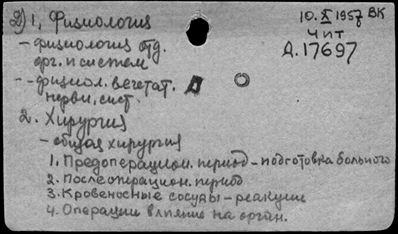 2) 1, Физиология
10. X 1957 ВК
Чит
Д.17697
- физиология отд.
орг. и систем
-- физиол. вегетат.
нервн. сист.
2. Хирургия
- общая хирургия
1. Предоперацион. период - подготовка больного
2. Послеоперацион. период
3. Кровеносные сосуды - реакции
4. Операции влияние на орган.